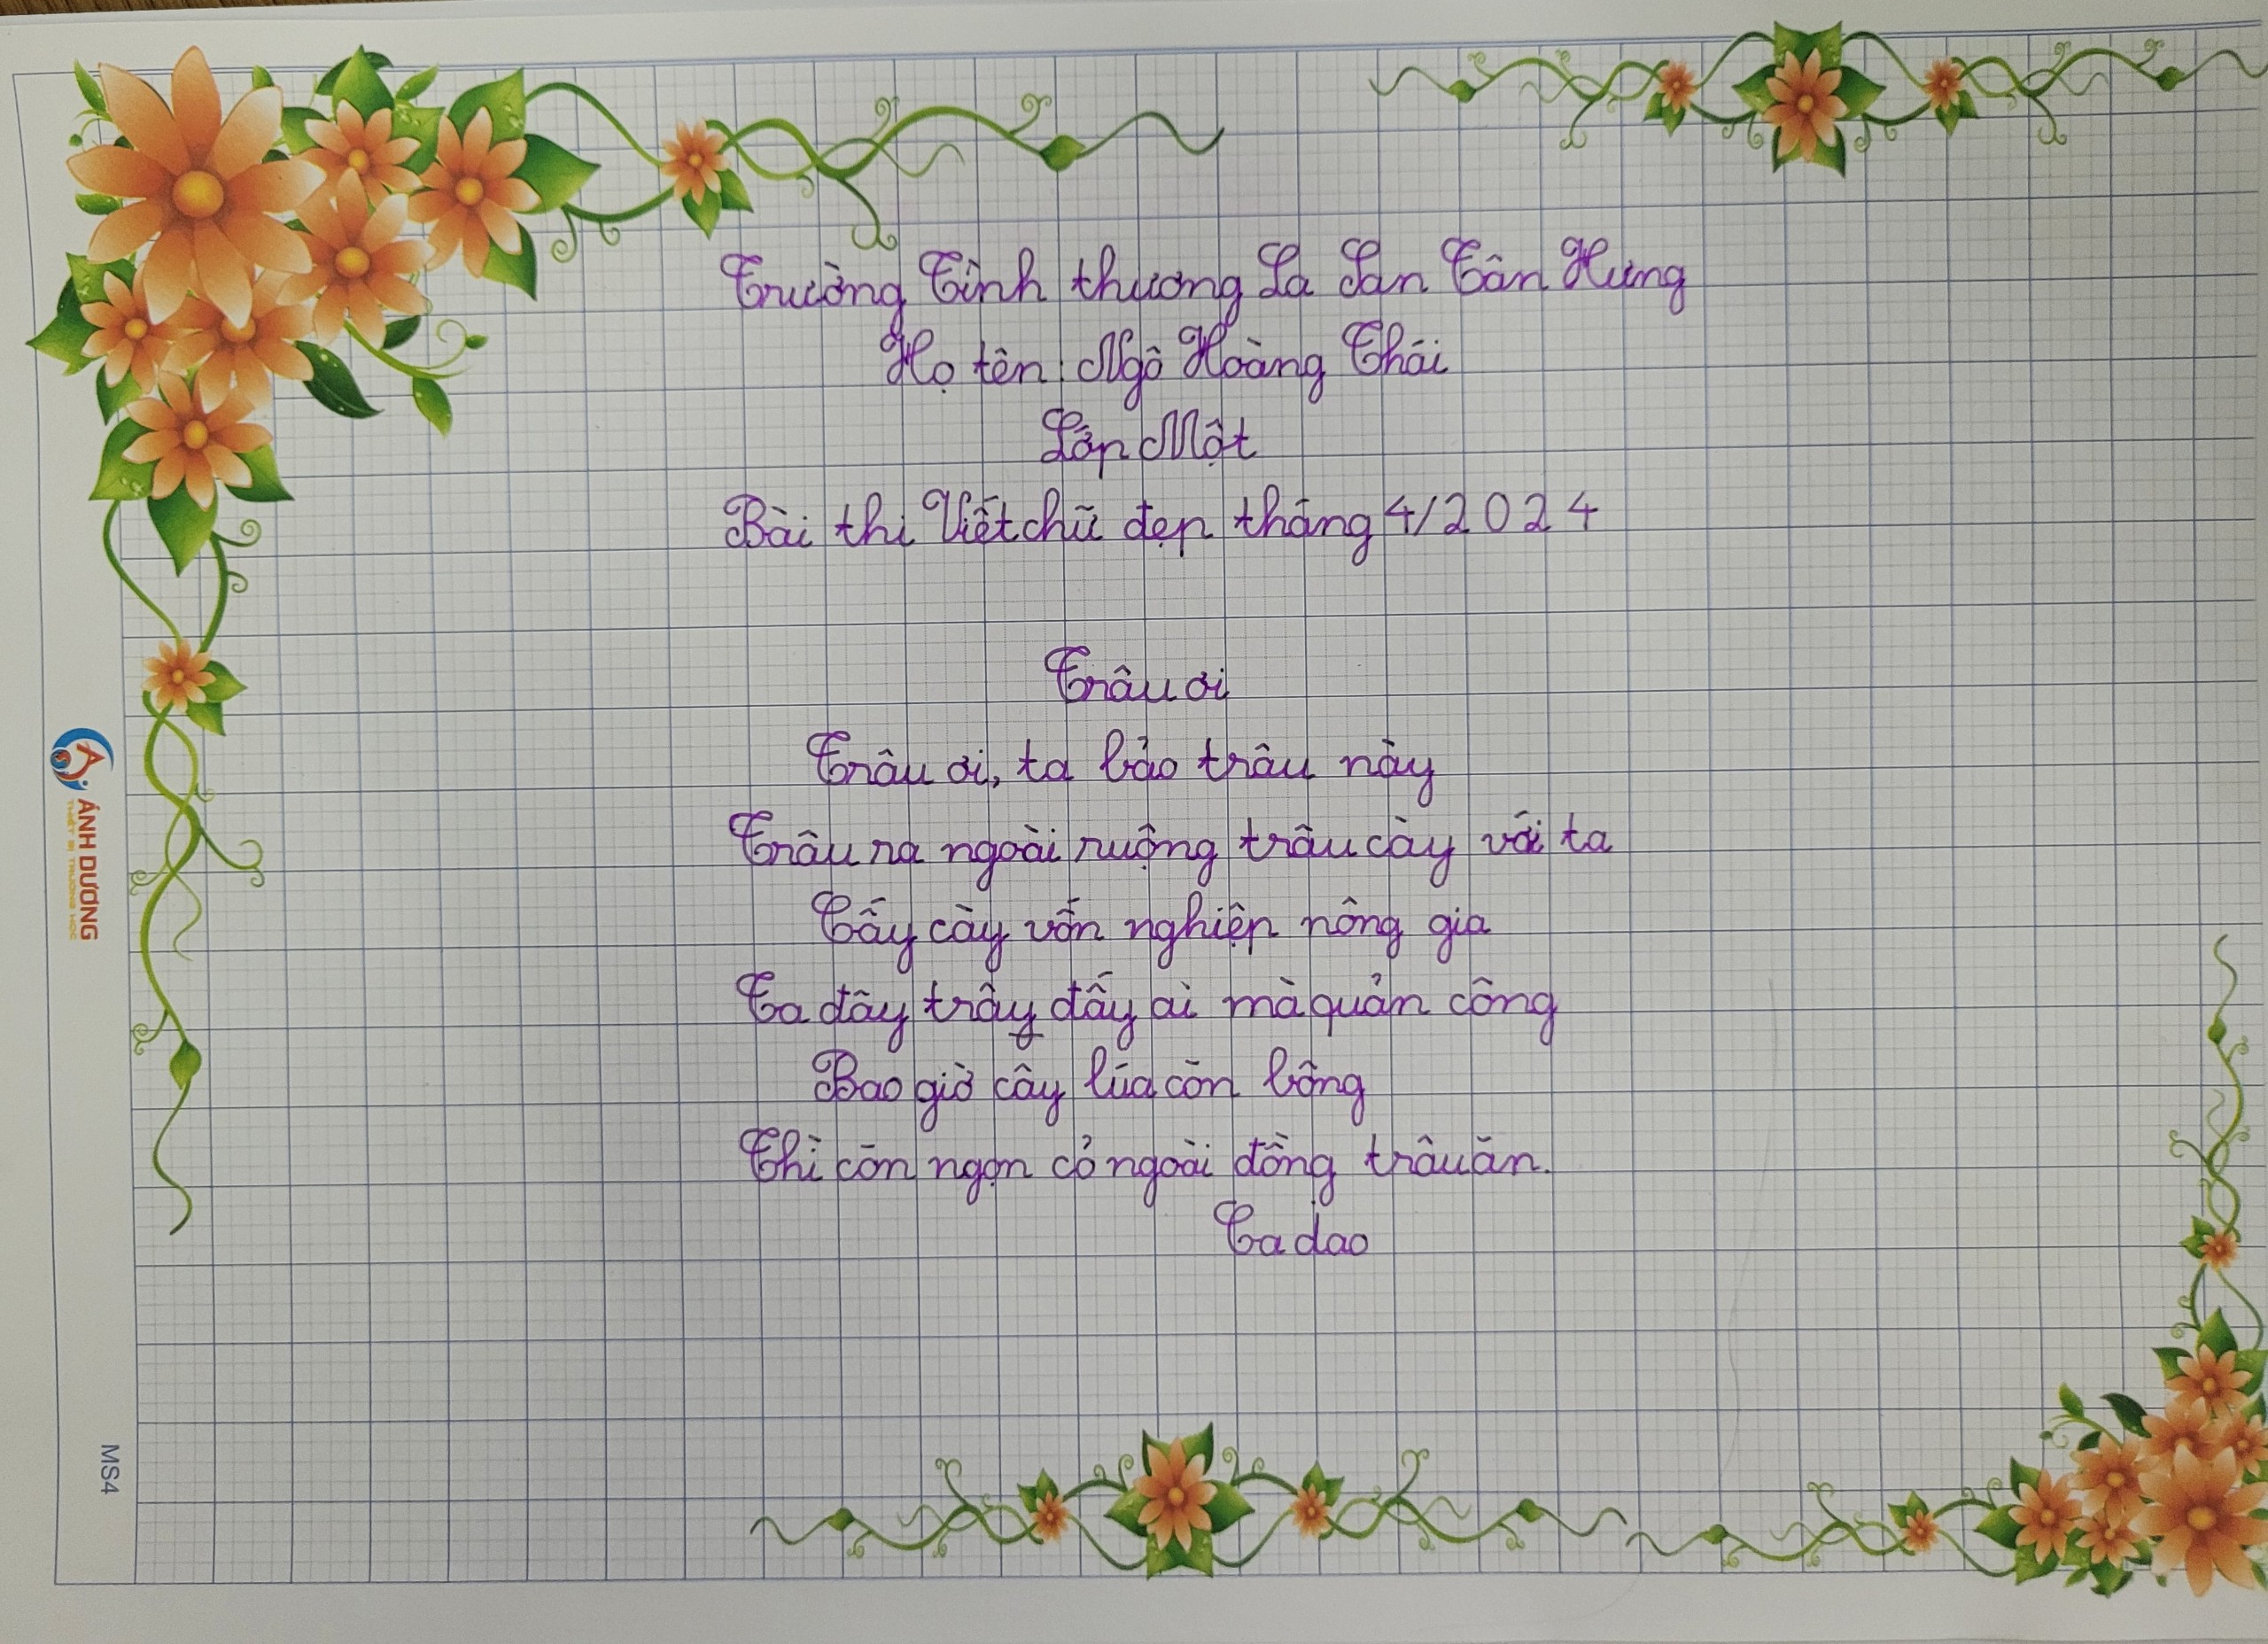 Trường Tình thương La San Tân Hưng
Họ tên: Ngô Hoàng Thái
Lớp Một
Bài thi Viết chữ đẹp tháng 4/2024
Trâu ơi
Trâu ơi, ta bảo trâu này
Trâu ra ngoài ruộng trâu cày với ta
Cấy cày vốn nghiệp nông gia
Ta đây trây đấy ai mà quản công
Bao giờ cây lúa còn bông
Thì còn ngọn cỏ ngoài đồng trâu ăn.
Ca dao
ÁNH DƯƠNG
THIẾT BỊ TRƯỜNG HỌC
MS4